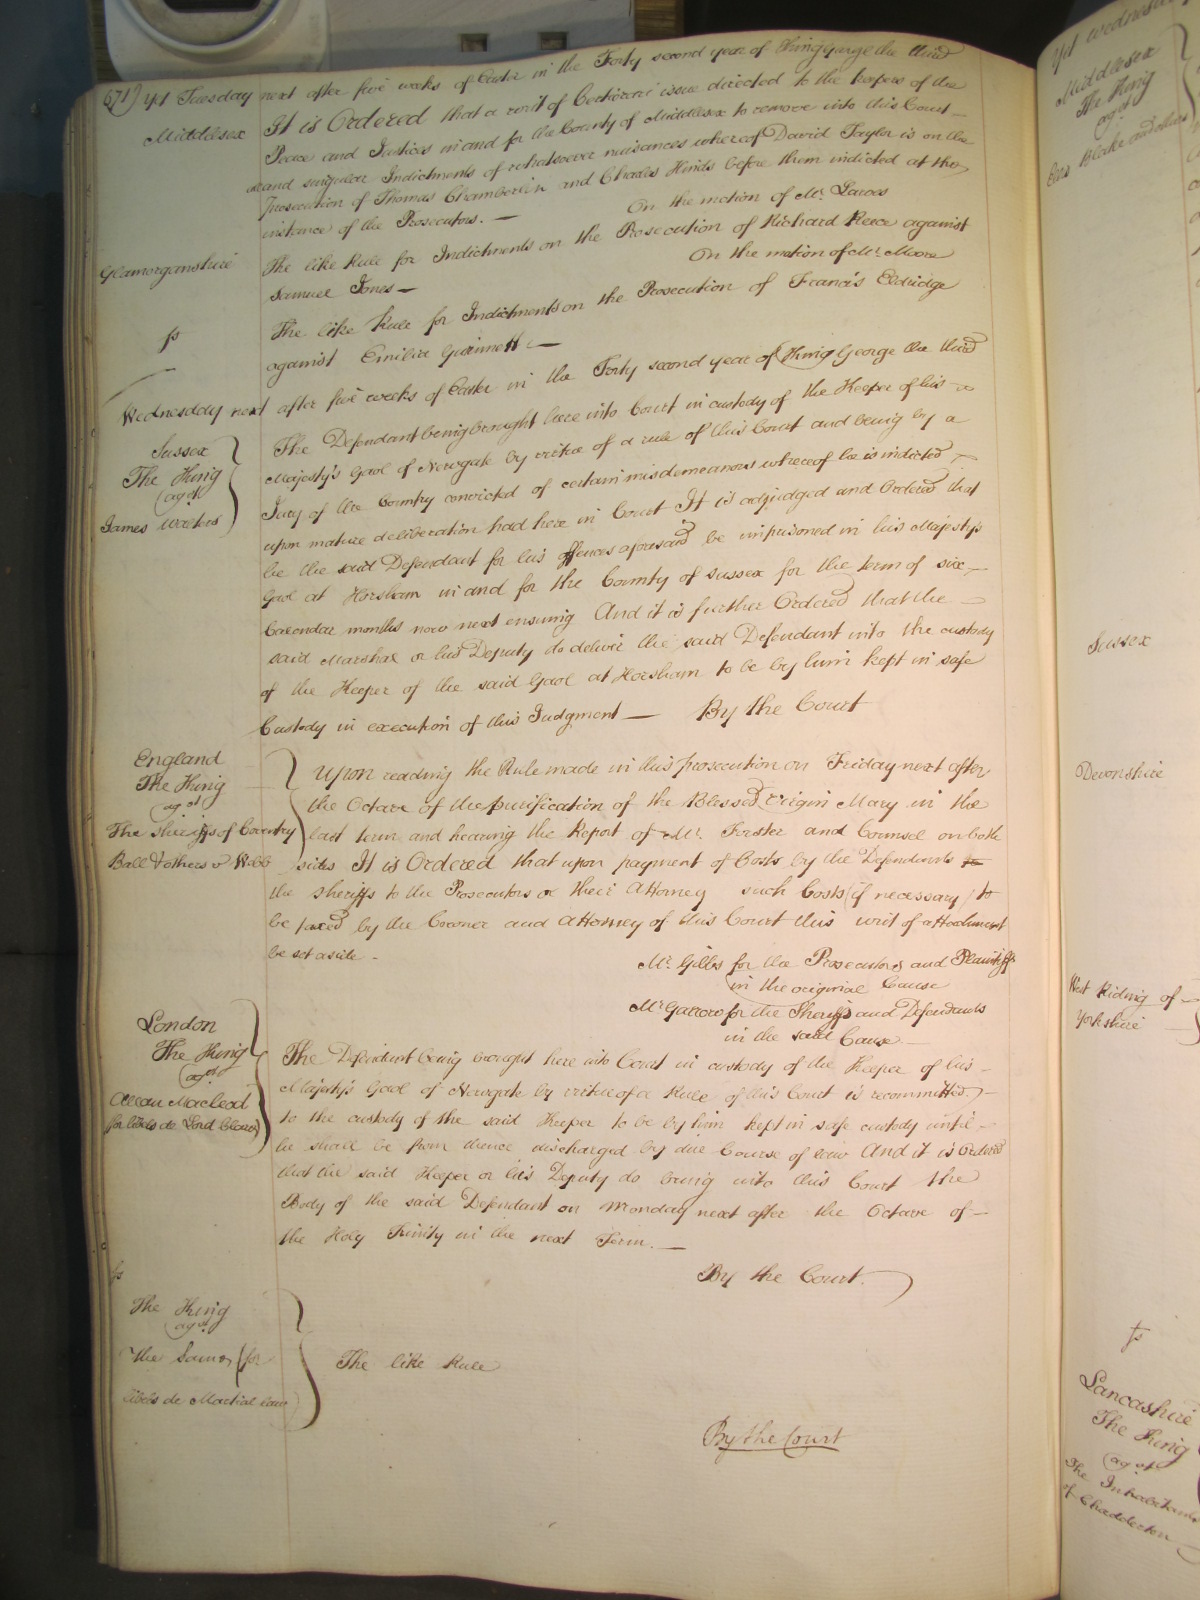 671) Yet Tuesday next after five weeks of Easter in the Forty second year of King George the third
Middlesex
It is Ordered that a writ of Certiorari issue directed to the keepers of the
Peace and Justices in and for the County of Middlesex to remove into this Court
all and singular Indictments of whatsoever nuisances whereof David Taylor is on the
Prosecution of Thomas Chamberlin and Charles Hinds before them indicted at the
instance of the Prosecutors. —
On the motion of Mr. Lawes
Glamorganshire
The like Rule for Indictments on the Prosecution of Richard Reece against
Samuel Jones —
On the motion of Mr. Moore
fs
The like Rule for Indictments on the Prosecution of Francis Eldridge
against Emilia Gwinnett —
Wednesday next after five weeks of Easter in the Forty second year of King George the third
Sussex
The King
agst
James Waters
The Defendant being brought here into Court in custody of the Keeper of his
Majesty's Gaol of Newgate by virtue of a rule of this Court and being by a
Jury of the Country convicted of certain misdemeanors whereof he is indicted
upon mature deliberation had here in Court It is adjudged and Ordered that
he the said Defendant for his offences aforesaid be imprisoned in his Majesty's
Gaol at Horsham in and for the County of Sussex for the term of six
Calendar months now next ensuing And it is further Ordered that the
said Marshal or his Deputy do deliver the said Defendant into the custody
of the Keeper of the said Gaol at Horsham to be by him kept in safe
Custody in execution of this Judgment — By the Court
England
The King
agst
The Sheriffs of Coventry
Ball & others v Webb
Upon reading the Rule made in this prosecution on Friday next after
the Octave of the purification of the Blessed Virgin Mary in the
last term and hearing the Report of Mr. Forster and Counsel on both
sides It is Ordered that upon payment of Costs by the Defendants
the Sheriffs to the Prosecutors or their Attorney such Costs (if necessary) to
be taxed by the Coroner and Attorney of this Court this writ of attachment
be set aside -
Mr. Gibbs for the Prosecutors and Plaintiffs
in the original Cause
Mr. Garrow for the Sheriffs and Defendants
in the said Cause
London
The King
agst
Allan Macleod
for libels de Lord Clare
The Defendant being brought here into Court in custody of the Keeper of his
Majesty's Gaol of Newgate by virtue of a Rule of this Court is recommitted
to the custody of the said Keeper to be by him kept in safe custody until
he shall be from thence discharged by due Course of law And it is Ordered
that the said Keeper or his Deputy do bring into this Court the
Body of the said Defendant on Monday next after the Octave of
the Holy Trinity in the next Term. —
By the Court.
fs
The King
agst
The Same for
libels de Martial law
The like Rule
By the Court
Yet Wednesday
Middlesex
The King
agst
Blake and others
Sussex
Devonshire
West Riding of
Yorkshire
fs
Lancashire
The King
agst
The Inhabitants
of Chadderton